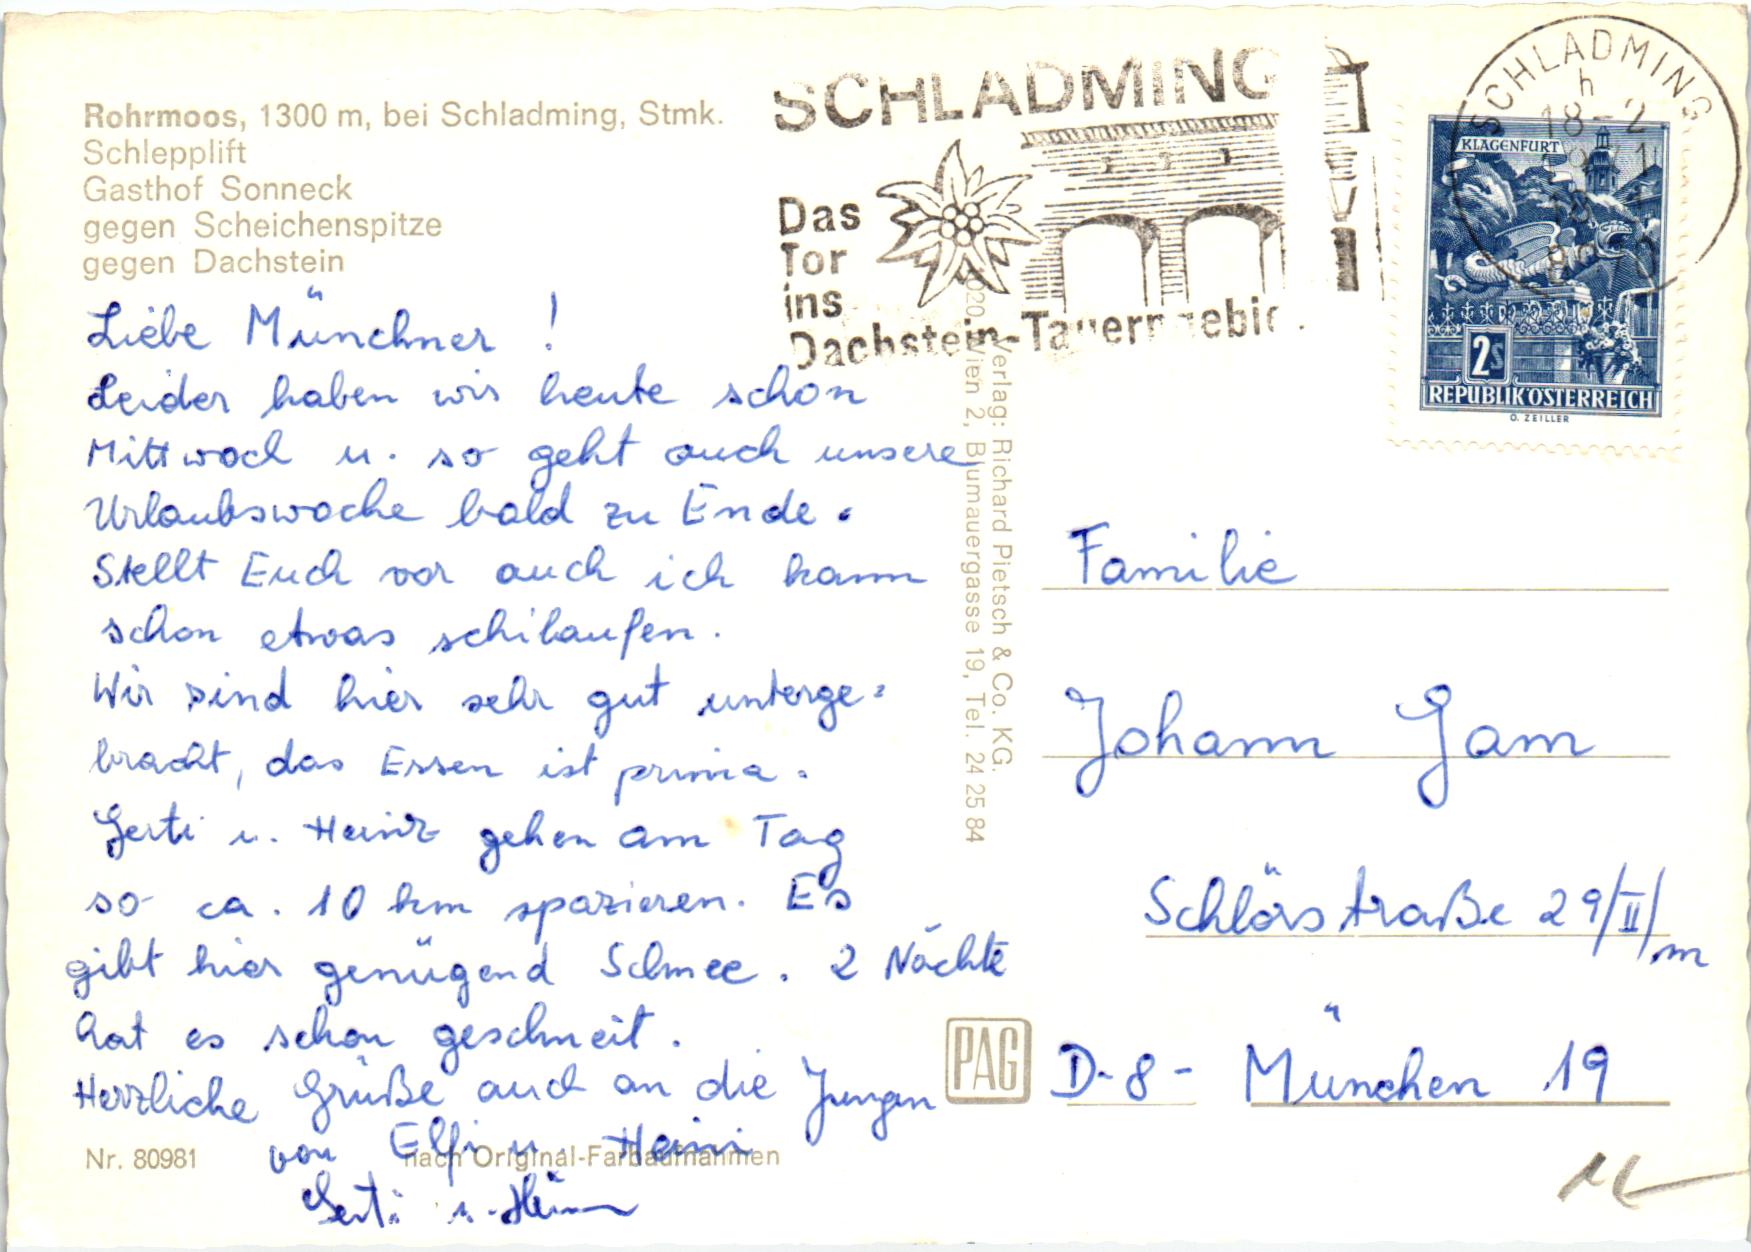 Rohrmoos, 1300 m, bei Schladming, Stmk.
Schlepplift
Gasthof Sonneck
gegen Scheichenspitze
gegen Dachstein
Liebe Münchner !
Leider haben wir heute schon
Mittwoch u. so geht auch unsere
Urlaubswoche bald zu Ende.
Stellt Euch vor auch ich kann
schon etwas schilaufen.
Wir sind hier sehr gut unterge=
bracht, das Essen ist prima.
Gerti u. Heinz gehen am Tag
so ca. 10 km spazieren. Es
gibt hier genügend Schnee. 2 Nächte
hat es schon geschneit.
Herzliche Grüße auch an die Jungen
von Elfi u. Heini
Gerti u.
Nr. 80981
nach Original-Farbaufnahmen
Verlag: Richard Pietsch & Co. KG.
Wien 2, Blumauergasse 19, Tel. 24 25 84
PAG
SCHLADMING
Das
Tor
ins
Dachstein-Tauerngebiet
SCHLADMING
h
18-2
KLAGENFURT
2S
REPUBLIK ÖSTERREICH
O. ZEILLER
Familie
Johann Gam
Schlörstraße 29/II/m
D-8- München 19